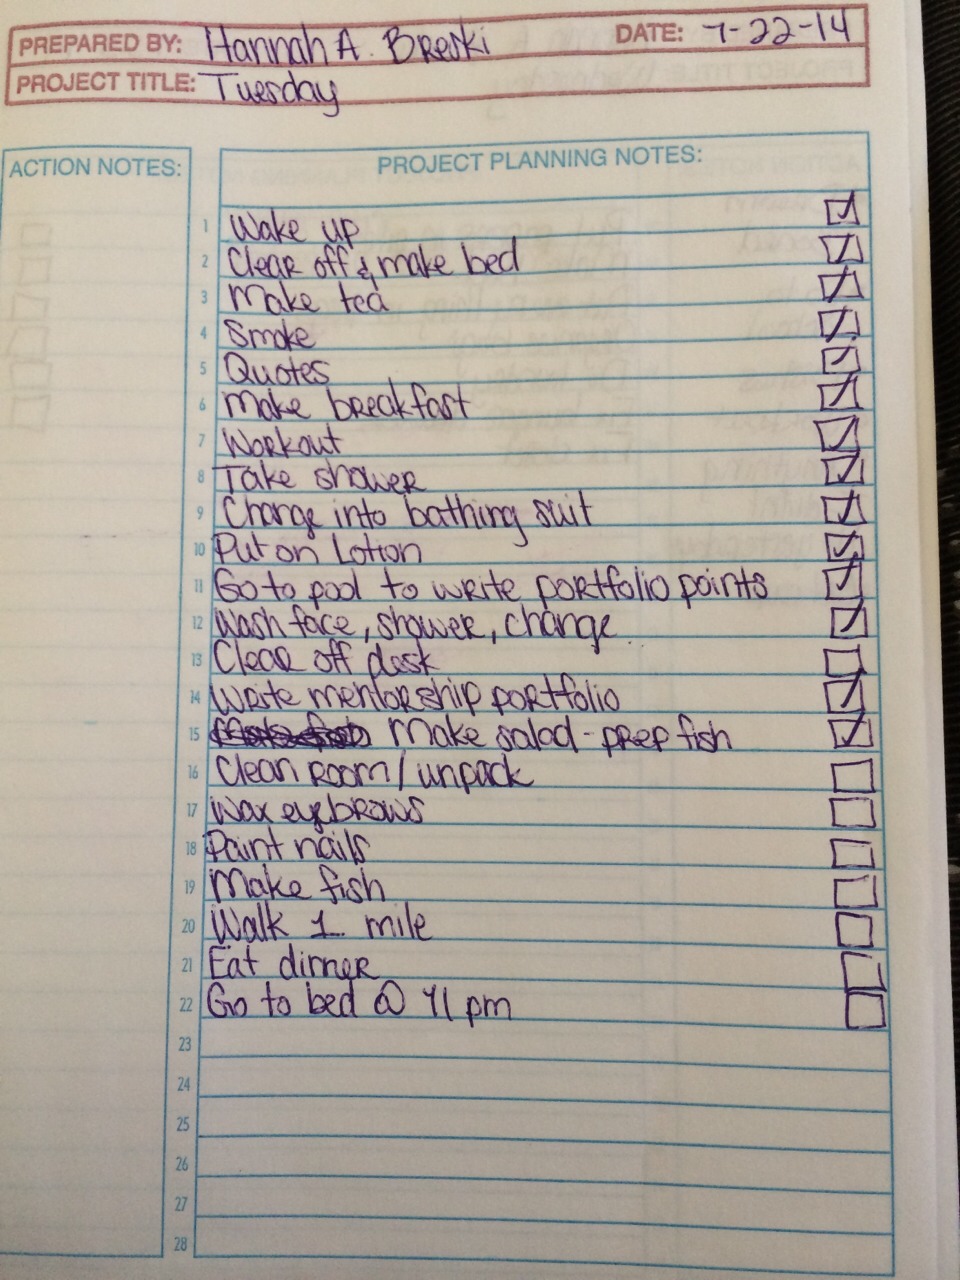 PREPARED BY: Hannah A. Breski DATE: 7-22-14
PROJECT TITLE: Tuesday
ACTION NOTES:
PROJECT PLANNING NOTES:
1 Wake up
2 Clear off & make bed
3 Make tea
4 Smoke
5 Quotes
6 Make breakfast
7 Workout
8 Take shower
9 Change into bathing suit
10 Put on Lotion
11 Go to pool to write portfolio points
12 Wash face, shower, change
13 Clear off desk
14 Write mentorship portfolio
15 Make salad - prep fish
16 Clean room / unpack
17 Wax eyebrows
18 Paint nails
19 Make fish
20 Walk 1 mile
21 Eat dinner
22 Go to bed @ 11 pm
23
24
25
26
27
28